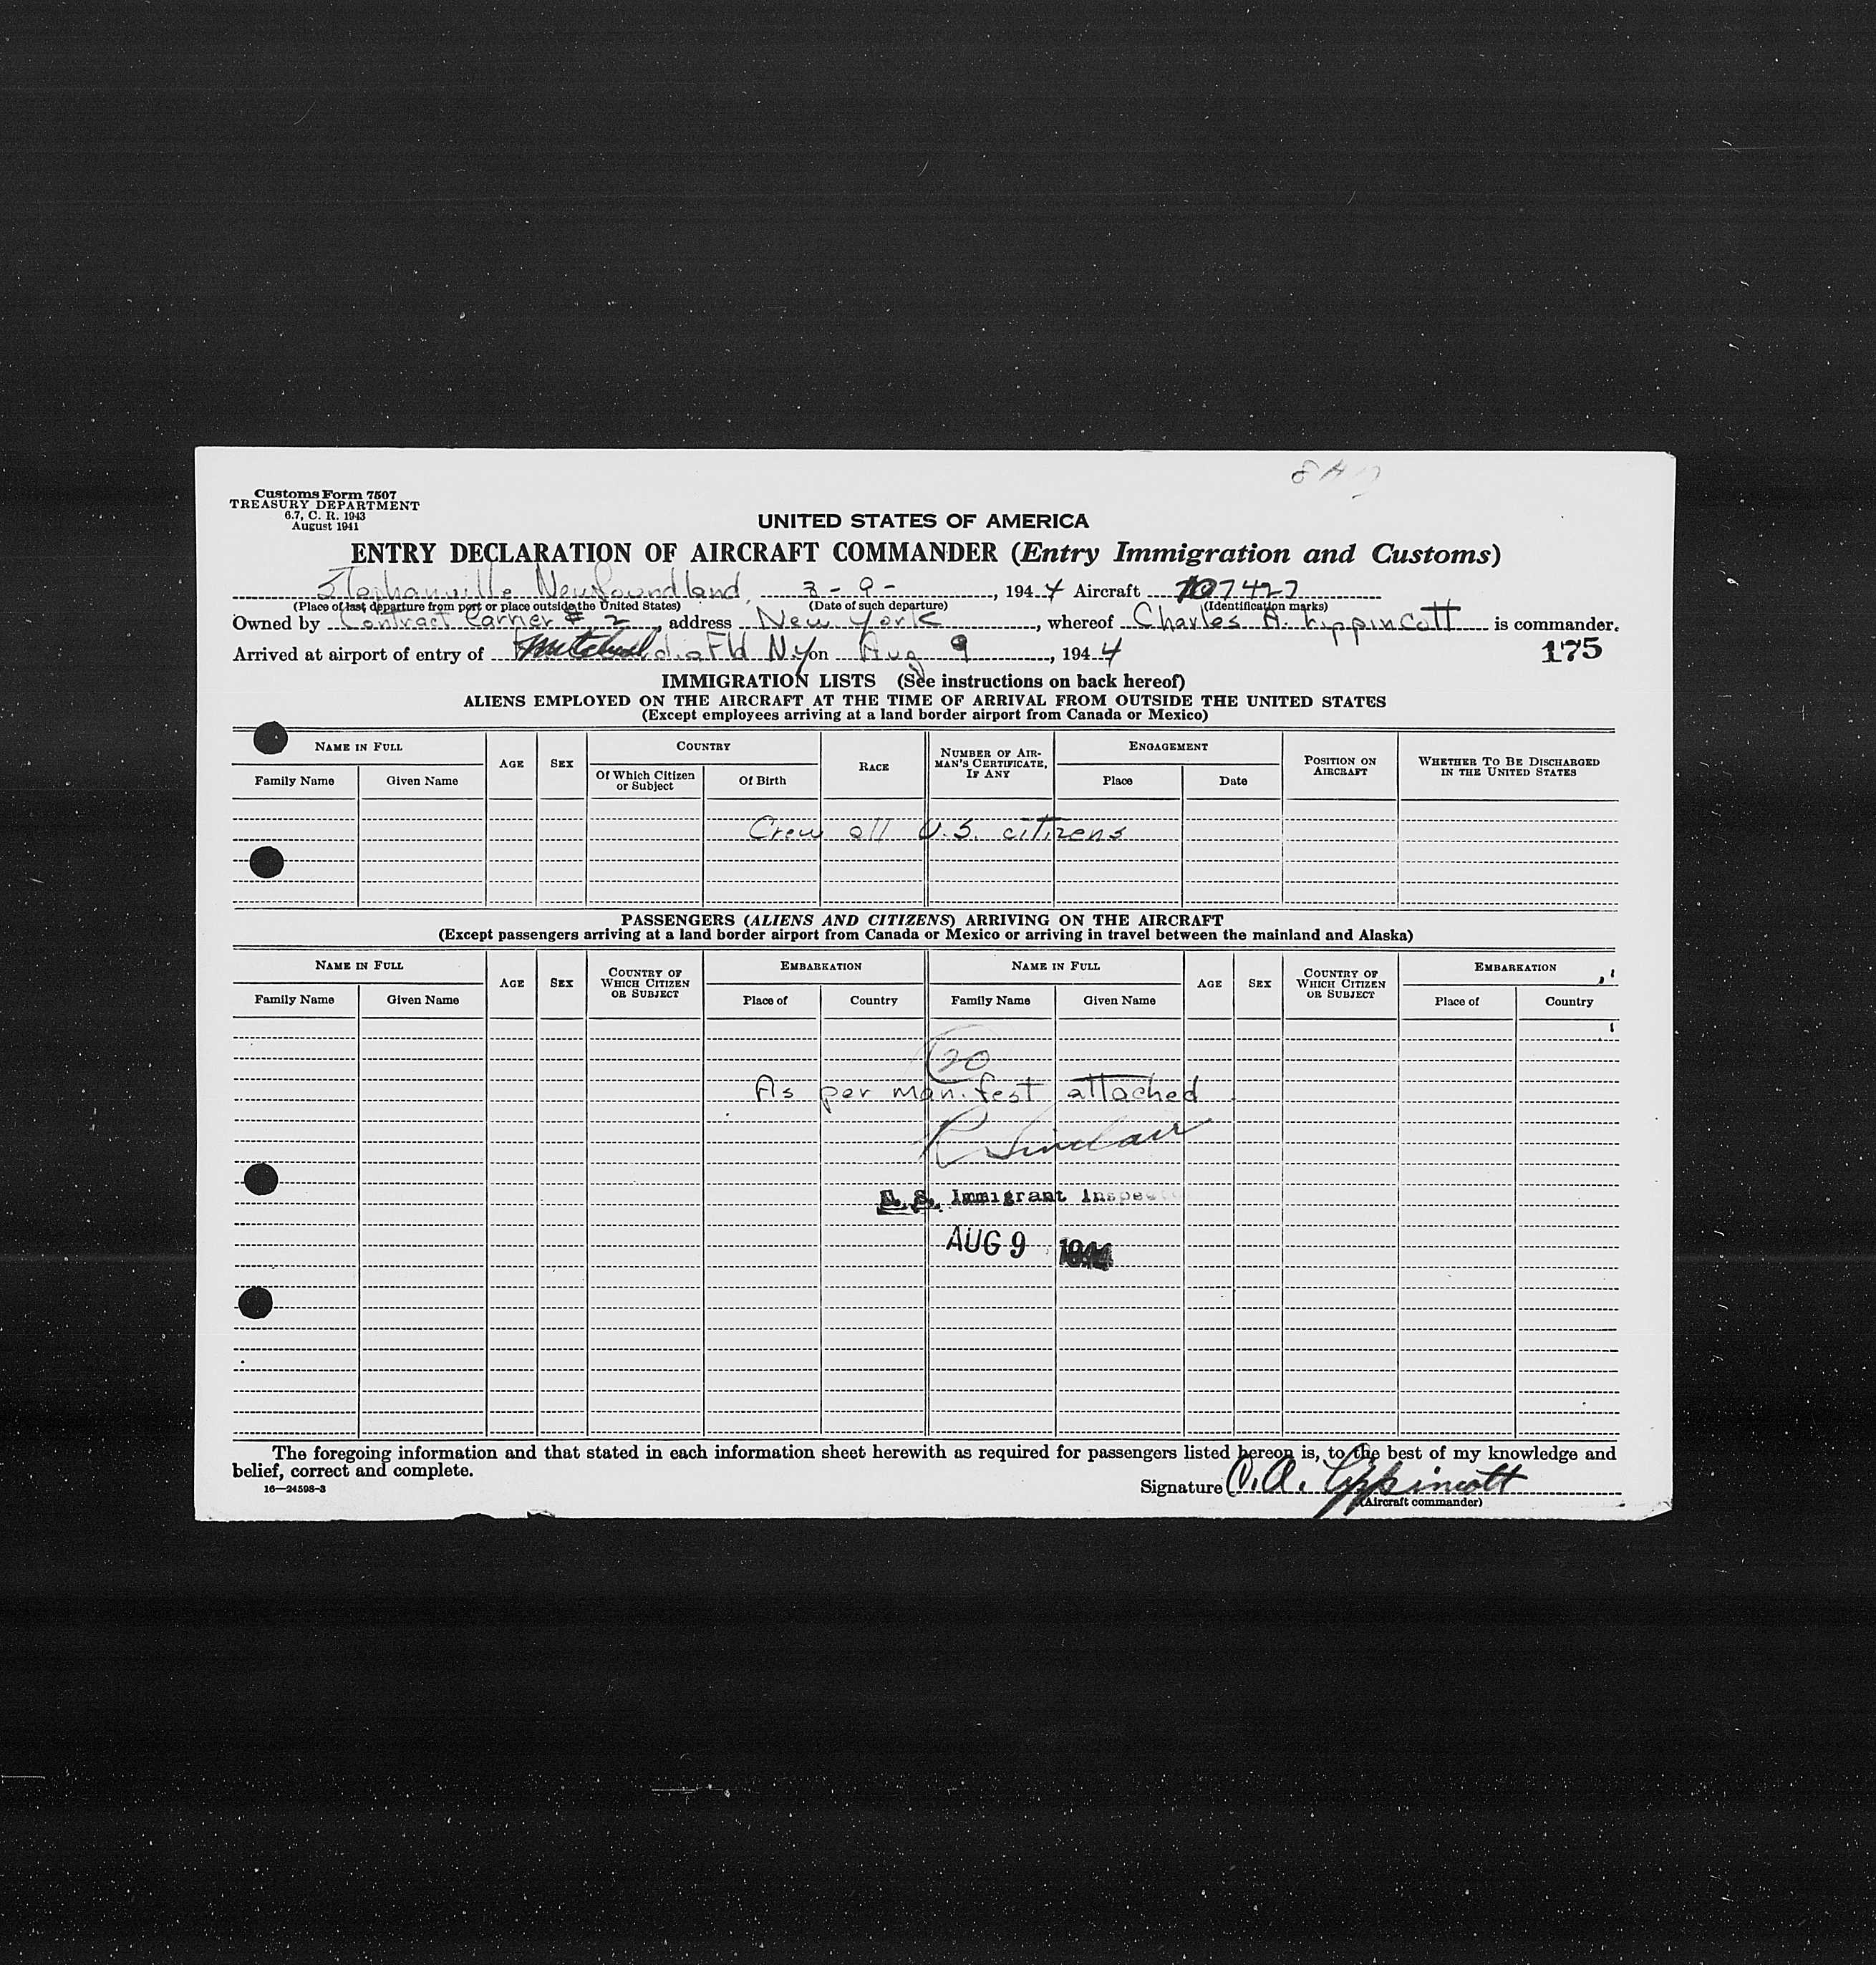 Customs Form 7507
TREASURY DEPARTMENT
6.7, C. R. 1943
August 1941
UNITED STATES OF AMERICA
ENTRY DECLARATION OF AIRCRAFT COMMANDER (Entry Immigration and Customs)
Stephanville Newfoundland, 194 4 Aircraft 107427
(Place of last departure from port or place outside the United States) (Date of such departure) (Identification marks)
Owned by Contract Carrier # 2, address New York, whereof Charles A. Lippincott is commander.
Arrived at airport of entry of Mitchel Fld N.Y. on Aug 9, 194 4
175
IMMIGRATION LISTS (See instructions on back hereof)
ALIENS EMPLOYED ON THE AIRCRAFT AT THE TIME OF ARRIVAL FROM OUTSIDE THE UNITED STATES
(Except employees arriving at a land border airport from Canada or Mexico)
NAME IN FULL AGE SEX COUNTRY RACE NUMBER OF AIRMAN'S CERTIFICATE, IF ANY ENGAGEMENT POSITION ON AIRCRAFT WHETHER TO BE DISCHARGED IN THE UNITED STATES
Family Name Given Name Of Which Citizen or Subject Of Birth Place Date
Crew all U.S. citizens
PASSENGERS (ALIENS AND CITIZENS) ARRIVING ON THE AIRCRAFT
(Except passengers arriving at a land border airport from Canada or Mexico or arriving in travel between the mainland and Alaska)
NAME IN FULL AGE SEX COUNTRY OF WHICH CITIZEN OR SUBJECT EMBARKATION NAME IN FULL AGE SEX COUNTRY OF WHICH CITIZEN OR SUBJECT EMBARKATION
Family Name Given Name Place of Country Family Name Given Name Place of Country
20
As per manifest attached
R Sinclair
U. S. Immigrant Inspector
AUG 9 1944
The foregoing information and that stated in each information sheet herewith as required for passengers listed hereon is, to the best of my knowledge and
belief, correct and complete.
16—24598-3
Signature C. A. Lippincott
(Aircraft commander)